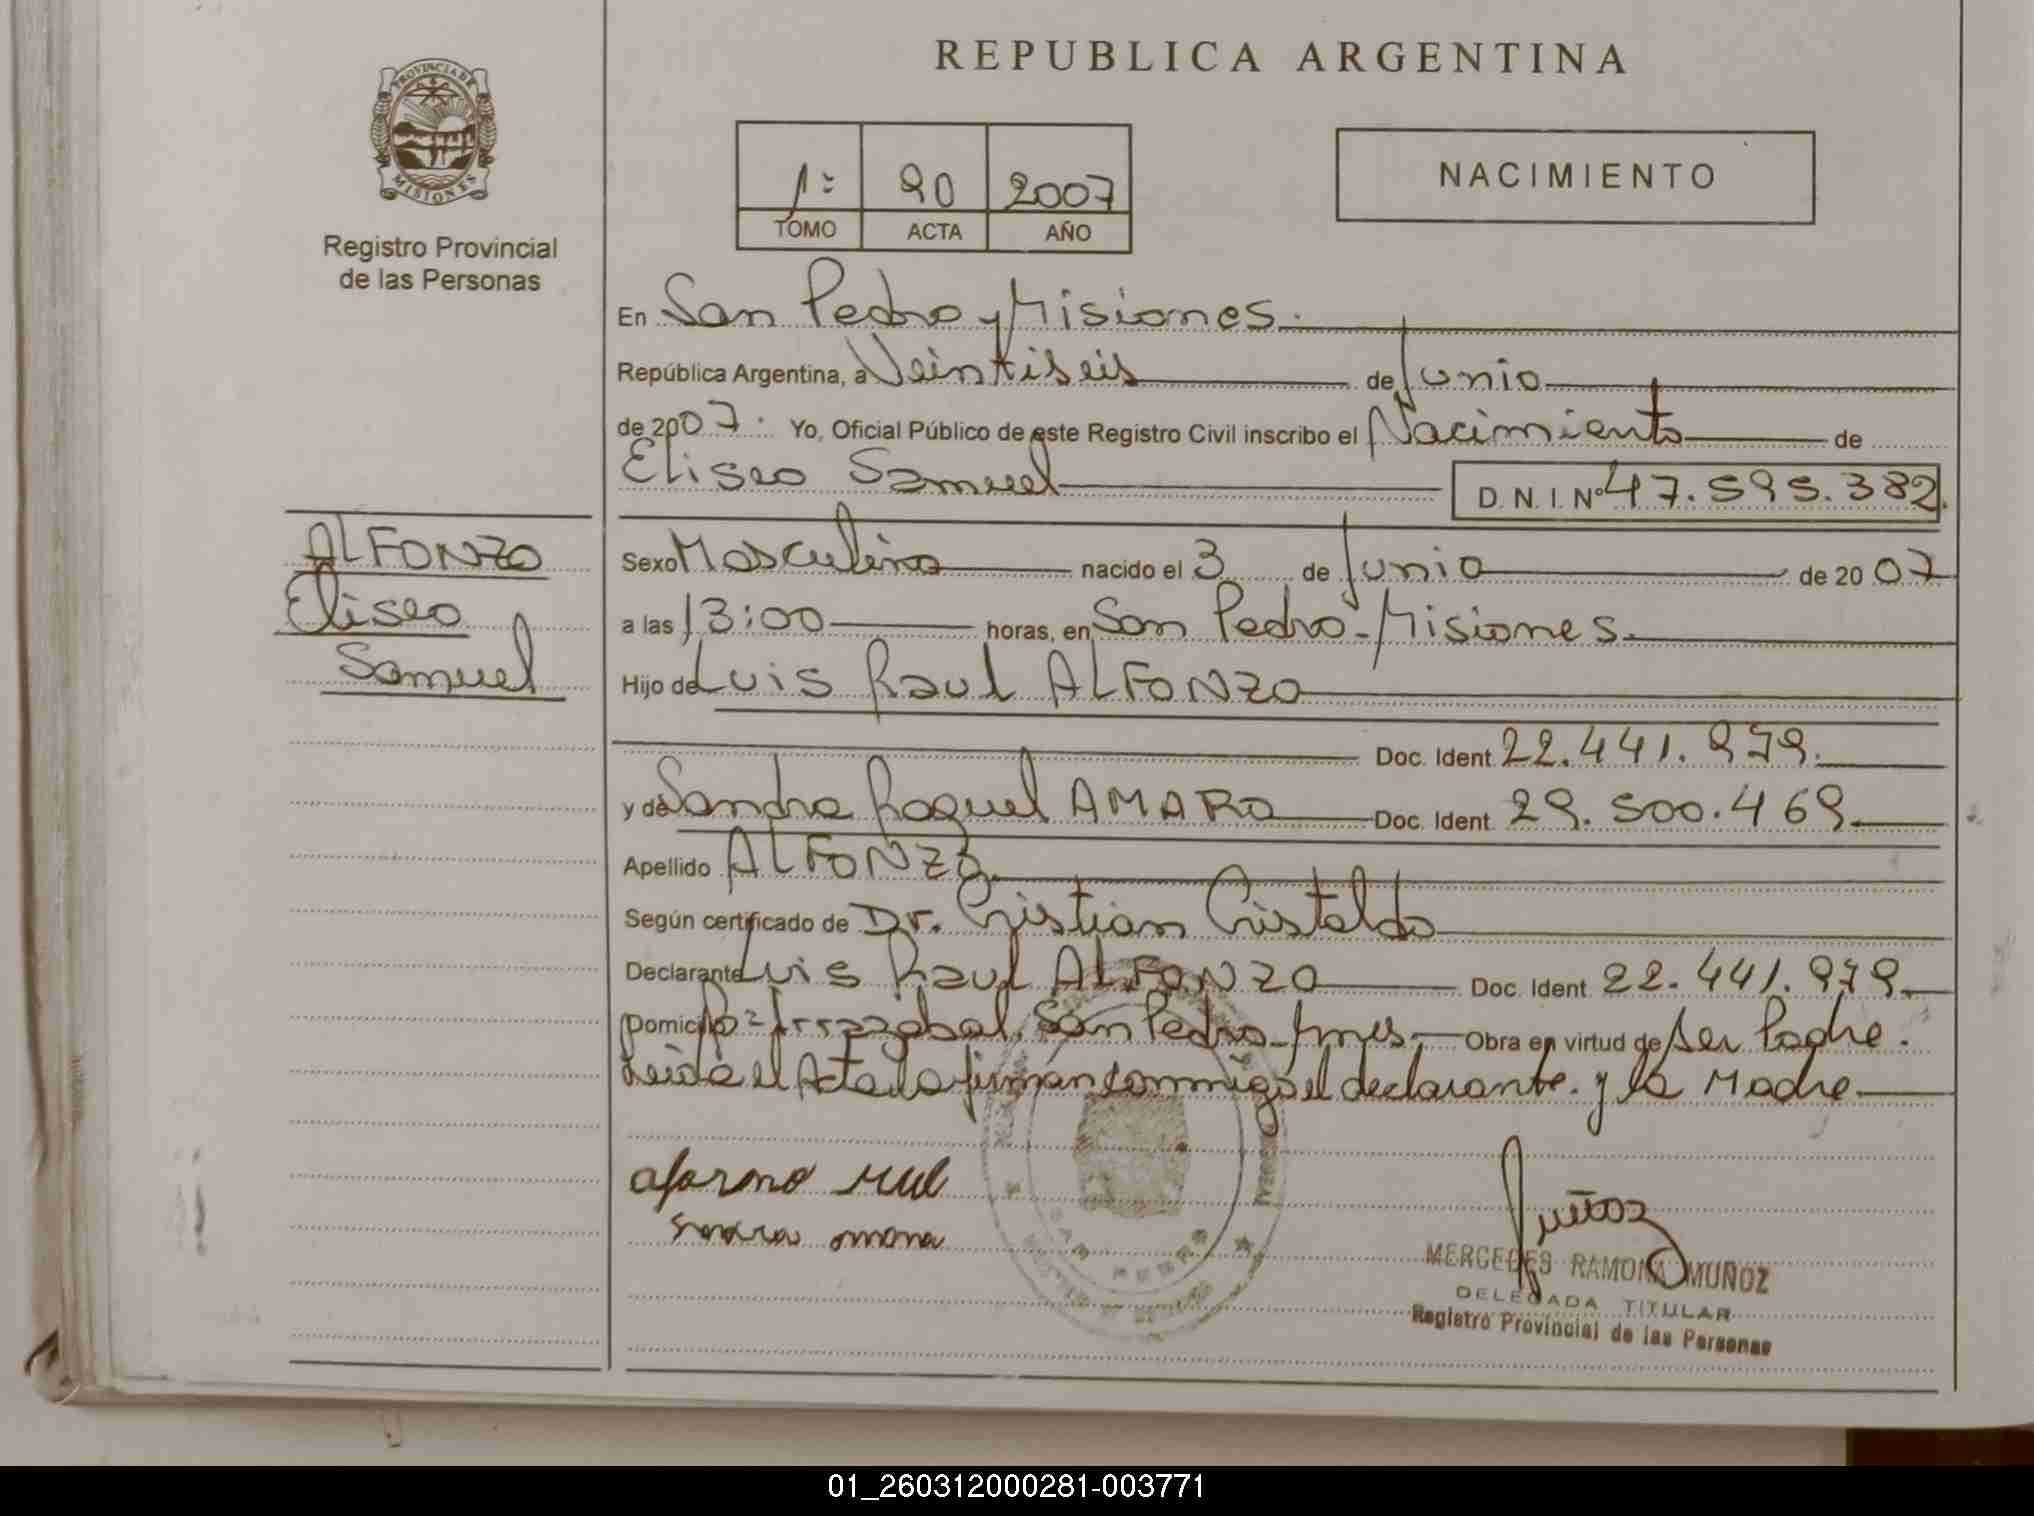 REPUBLICA ARGENTINA
PROVINCIA DE
MISIONES
Registro Provincial
de las Personas
1º 90 2007
TOMO ACTA AÑO
NACIMIENTO
En San Pedro, Misiones.
República Argentina, a Veintiseis de Junio
de 2007. Yo, Oficial Público de este Registro Civil inscribo el Nacimiento de
Eliseo Samuel D.N.I. Nº 47.595.382.
ALFONZO
Eliseo
Samuel
Sexo Masculino nacido el 3 de Junio de 2007
a las 13:00 horas, en San Pedro-Misiones.
Hijo de Luis Raul ALFONZO
Doc. Ident 22.441.979.
y de Sandra Raquel AMARO Doc. Ident. 29.500.469.
Apellido ALFONZO.
Según certificado de Dr. Cristian Cristaldo
Declarante Luis Raul ALFONZO Doc. Ident 22.441.979.
Domicilio Bº Irrazabal, San Pedro-Mnes. Obra en virtud de ser Padre.
Leida el Acta la firman conmigo el declarante. y la Madre
SAN PEDRO
Muñoz
MERCEDES RAMONA MUÑOZ
DELEGADA TITULAR
Registro Provincial de las Personas
01_260312000281-003771